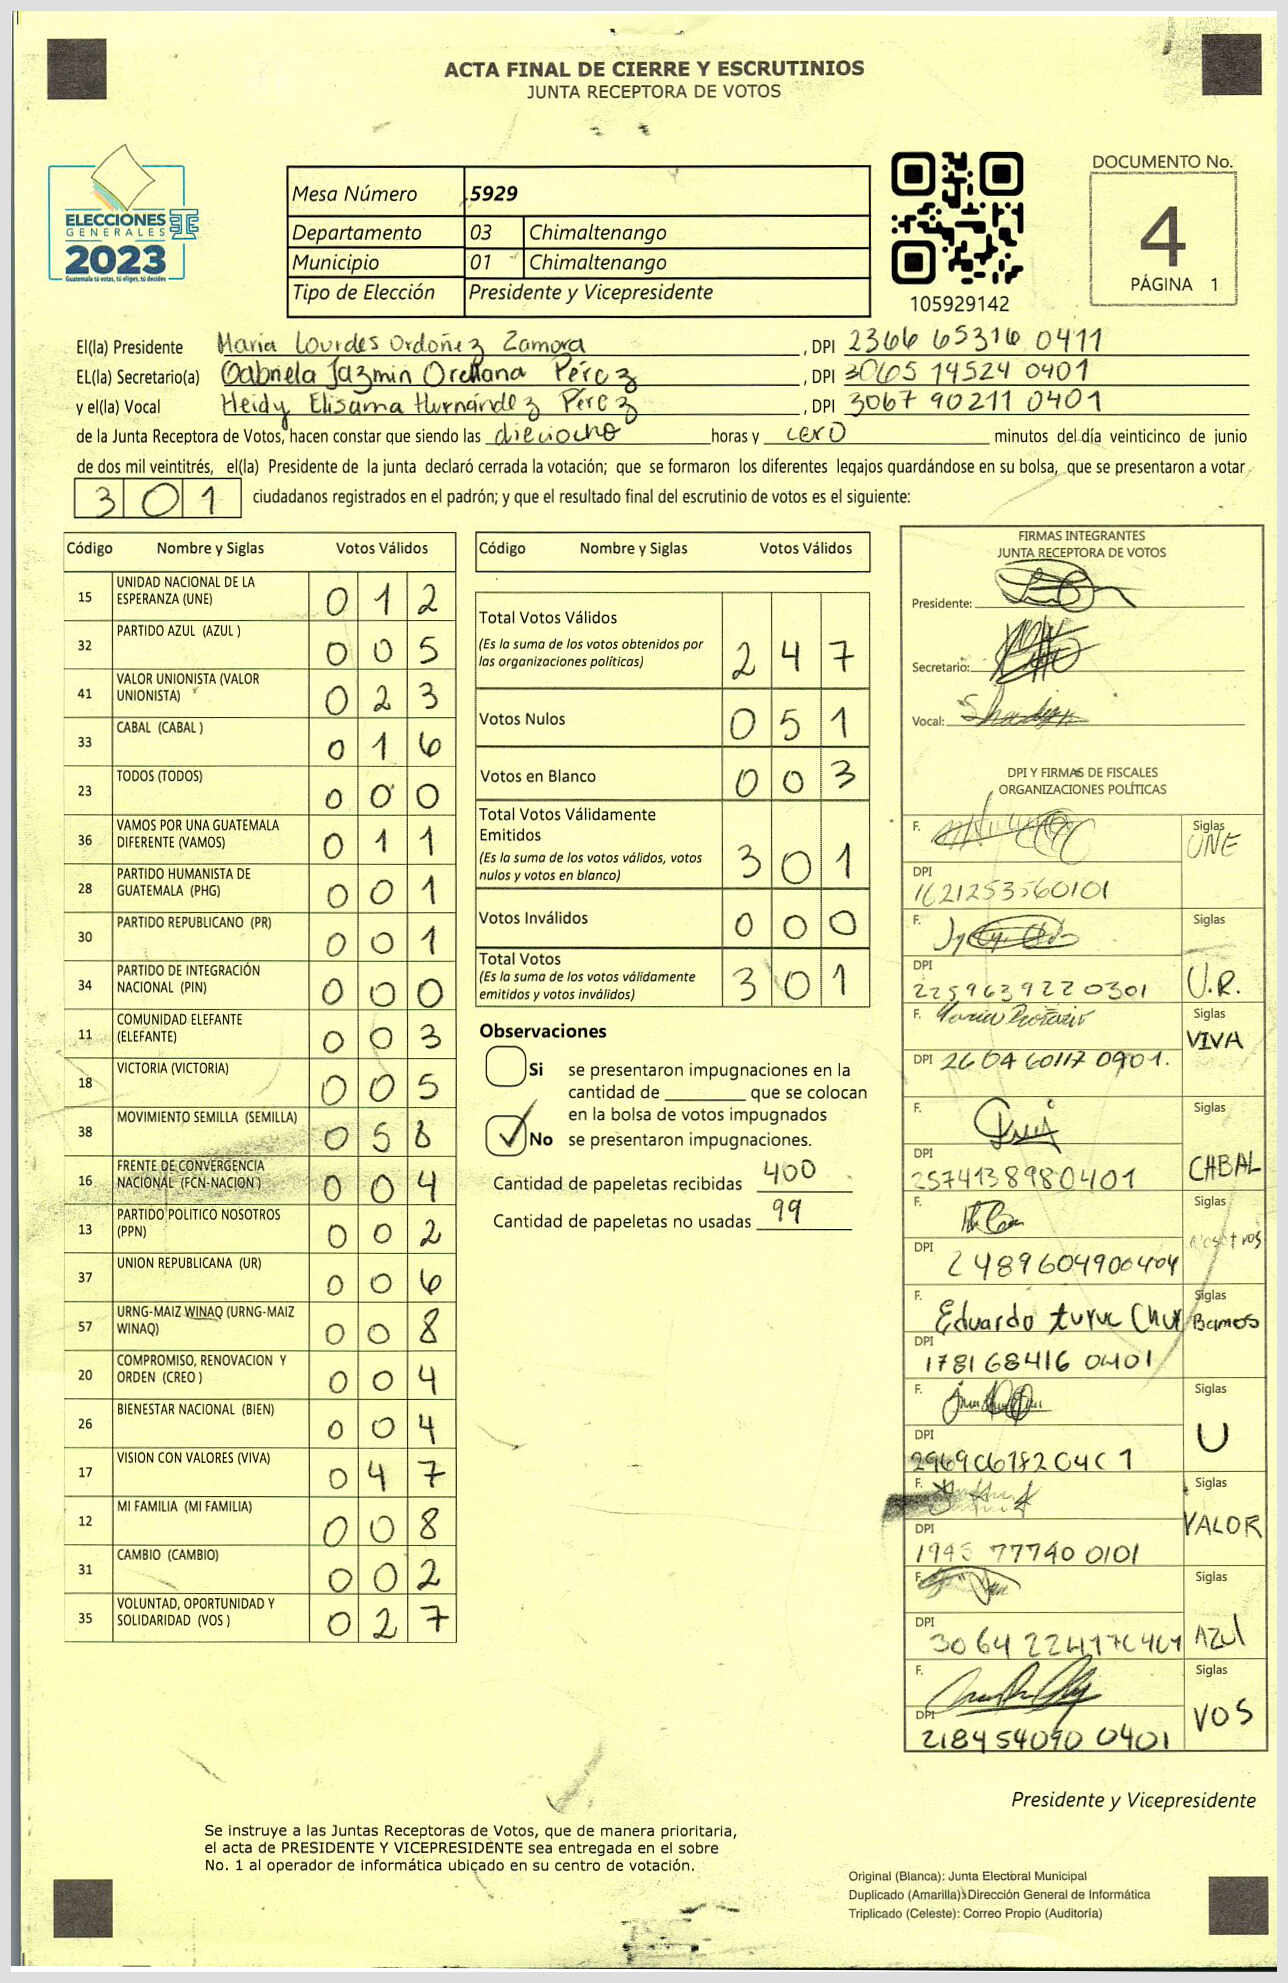 ACTA FINAL DE CIERRE Y ESCRUTINIOS
JUNTA RECEPTORA DE VOTOS
ELECCIONES
GENERALES
2023
Guatemala tú votas, tú eliges, tú decides
Mesa Número 5929
Departamento 03 Chimaltenango
Municipio 01 Chimaltenango
Tipo de Elección Presidente y Vicepresidente
105929142
DOCUMENTO No.
4
PÁGINA 1
El(la) Presidente Maria Lourdes Ordoñez Zamora, DPI 2366 65316 0411
EL(la) Secretario(a) Gabriela Jazmin Orellana Pérez, DPI 3065 14524 0401
y el(la) Vocal Heidy Elisama Hernández Pérez, DPI 3067 90211 0401
de la Junta Receptora de Votos, hacen constar que siendo las dieciocho horas y cero minutos del día veinticinco de junio
de dos mil veintitrés, el(la) Presidente de la junta declaró cerrada la votación; que se formaron los diferentes legajos guardándose en su bolsa, que se presentaron a votar
301 ciudadanos registrados en el padrón; y que el resultado final del escrutinio de votos es el siguiente:
Código Nombre y Siglas Votos Válidos
15 UNIDAD NACIONAL DE LA ESPERANZA (UNE) 012
32 PARTIDO AZUL (AZUL ) 005
41 VALOR UNIONISTA (VALOR UNIONISTA) 023
33 CABAL (CABAL ) 016
23 TODOS (TODOS) 000
36 VAMOS POR UNA GUATEMALA DIFERENTE (VAMOS) 011
28 PARTIDO HUMANISTA DE GUATEMALA (PHG) 001
30 PARTIDO REPUBLICANO (PR) 001
34 PARTIDO DE INTEGRACIÓN NACIONAL (PIN) 000
11 COMUNIDAD ELEFANTE (ELEFANTE) 003
18 VICTORIA (VICTORIA) 005
38 MOVIMIENTO SEMILLA (SEMILLA) 058
16 FRENTE DE CONVERGENCIA NACIONAL (FCN-NACION ) 004
13 PARTIDO POLITICO NOSOTROS (PPN) 002
37 UNION REPUBLICANA (UR) 006
57 URNG-MAIZ WINAQ (URNG-MAIZ WINAQ) 008
20 COMPROMISO, RENOVACION Y ORDEN (CREO ) 004
26 BIENESTAR NACIONAL (BIEN) 004
17 VISION CON VALORES (VIVA) 047
12 MI FAMILIA (MI FAMILIA) 008
31 CAMBIO (CAMBIO) 002
35 VOLUNTAD, OPORTUNIDAD Y SOLIDARIDAD (VOS ) 027
Código Nombre y Siglas Votos Válidos
Total Votos Válidos 247
(Es la suma de los votos obtenidos por las organizaciones políticas)
Votos Nulos 051
Votos en Blanco 003
Total Votos Válidamente Emitidos 301
(Es la suma de los votos válidos, votos nulos y votos en blanco)
Votos Inválidos 000
Total Votos 301
(Es la suma de los votos válidamente emitidos y votos inválidos)
Observaciones
Si se presentaron impugnaciones en la
cantidad de ________ que se colocan
en la bolsa de votos impugnados
No se presentaron impugnaciones.
Cantidad de papeletas recibidas 400
Cantidad de papeletas no usadas 99
FIRMAS INTEGRANTES
JUNTA RECEPTORA DE VOTOS
Presidente:
Secretario:
Vocal:
DPI Y FIRMAS DE FISCALES
ORGANIZACIONES POLÍTICAS
F. Siglas UNE
DPI 1621253560101
F. Siglas U.R.
DPI 2259639220301
F. Siglas VIVA
DPI 2604 60117 0901.
F. Siglas CABAL
DPI 2574138980401
F. Siglas Nosotros
DPI 2489604900404
F. Eduardo turuc Chux Siglas Bamos
DPI 178168416 0401
F. Siglas U
DPI
F. Siglas VALOR
DPI 1945 77740 0101
F. Siglas Azul
DPI
F. Siglas VOS
DPI 218454090 0401
Presidente y Vicepresidente
Se instruye a las Juntas Receptoras de Votos, que de manera prioritaria,
el acta de PRESIDENTE Y VICEPRESIDENTE sea entregada en el sobre
No. 1 al operador de informática ubicado en su centro de votación.
Original (Blanca): Junta Electoral Municipal
Duplicado (Amarilla): Dirección General de Informática
Triplicado (Celeste): Correo Propio (Auditoría)